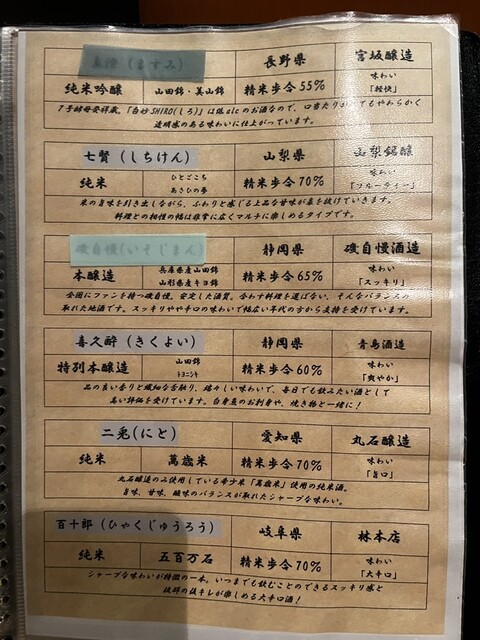 真澄(ますみ) 長野県 宮坂醸造
純米吟醸 山田錦・美山錦 精米歩合55% 味わい「軽快」
7号酵母発祥蔵。「白妙SHIRO(しろ)」は低alcのお酒なので、口当たりがとてもやわらかく
透明感のある味わいに仕上がっています。
七賢(しちけん) 山梨県 山梨銘醸
純米 ひとごこち あさひの夢 精米歩合70% 味わい「フルーティー」
米の旨味を引き出しながら、ふわりと感じる上品な甘味が鼻を抜けていきます。
料理との相性の幅は非常に広くマルチに楽しめるタイプです。
磯自慢(いそじまん) 静岡県 磯自慢酒造
本醸造 兵庫県産山田錦 山形県産キヨ錦 精米歩合65% 味わい「スッキリ」
全国にファンを持つ磯自慢。安定した酒質。合わす料理を選ばない、そんなバランスの
取れた地酒です。スッキリやや辛口の味わいで幅広い年代の方から支持を受けています。
喜久酔(きくよい) 静岡県 青島酒造
特別本醸造 山田錦 トヨニシキ 精米歩合60% 味わい「爽やか」
品の良い香りと繊細な舌触り、瑞々しい味わいで、毎日でも飲みたい酒として
高い評価を受けています。白身魚のお刺身や、焼き物と一緒に!
二兎(にと) 愛知県 丸石醸造
純米 萬歳米 精米歩合70% 味わい「旨口」
丸石醸造のみ使用している希少米「萬歳米」使用の純米酒。
旨味、甘味、酸味のバランスが取れたシャープな味わい。
百十郎(ひゃくじゅうろう) 岐阜県 林本店
純米 五百万石 精米歩合70% 味わい「大辛口」
シャープな味わいが特徴の一本。いつまでも飲むことのできるスッキリ感と
抜群の後キレが楽しめる大辛口酒!